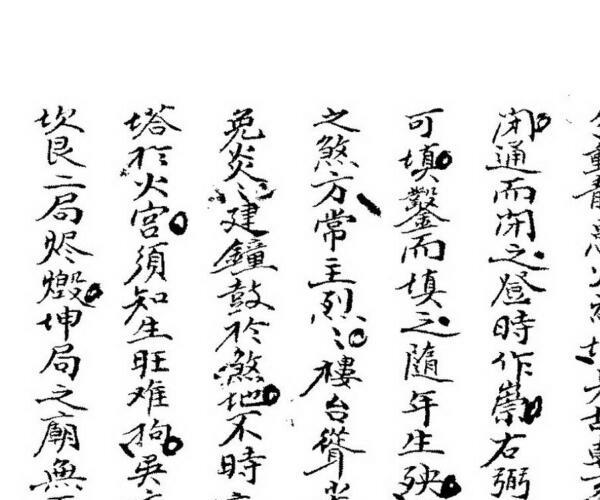 閉通而閉之登時作祟右弼
可填鑿而填之隨年生殃
之煞方常主烈烈樓台聳
免炎炎建鐘鼓於煞地不時
塔於火宮須知生旺难拘吳
坎艮二局烬燬坤局之廟無